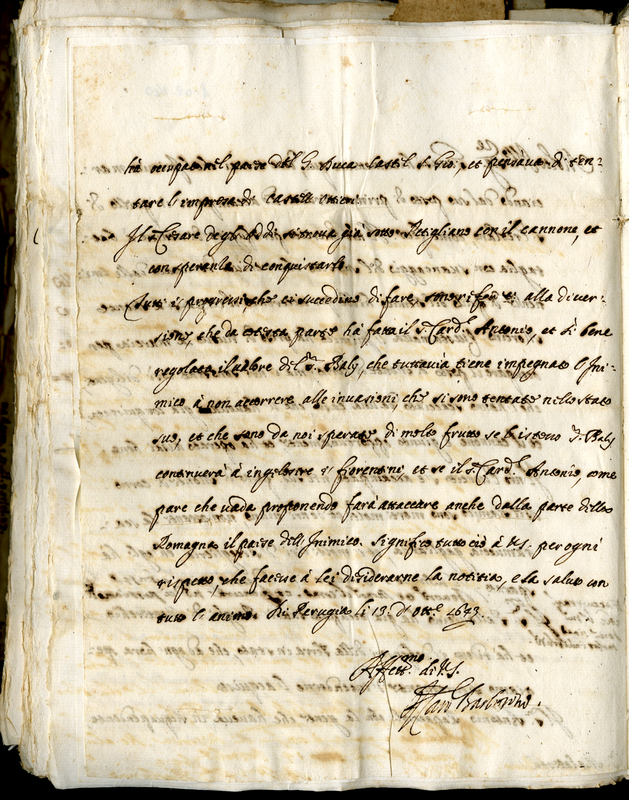 hà occupato nel paese del G. Duca Castel S. Gio:, et pensava di ten-
tare l'impresa di Castell'
Il S. Cesare degl' si trova già sotto Pitigliano con il cannone, et
con speranza di conquistarlo.
Tutti i progressi, che ci succedino di fare, sono alla diver-
sione, che da cotesta parte hà fatta il S. Card.l Antonio, et il bene
regolato il valore del S. Baly, che tuttavia tiene impegnato l'Ini-
mico à non accorrere alle invasioni, che si sono tentate nello stato
suo, et che sono da noi sperate di molto frutto se S. Baly
continuerà à ingelosire i fiorentini, et se il S. Card.l Antonio, come
pare che vada proponendo farà attaccare anche dalla parte della
Romagna il paese dell'Inimico. Significo tutto ciò à V.S. per ogni
rispetto, che facesse à lei desiderarne la notitia, e la saluto con
tutto l'animo. Di Perugia li 13. d' Ott.e 1643.
Affett.mo di V.S.
Barberino.